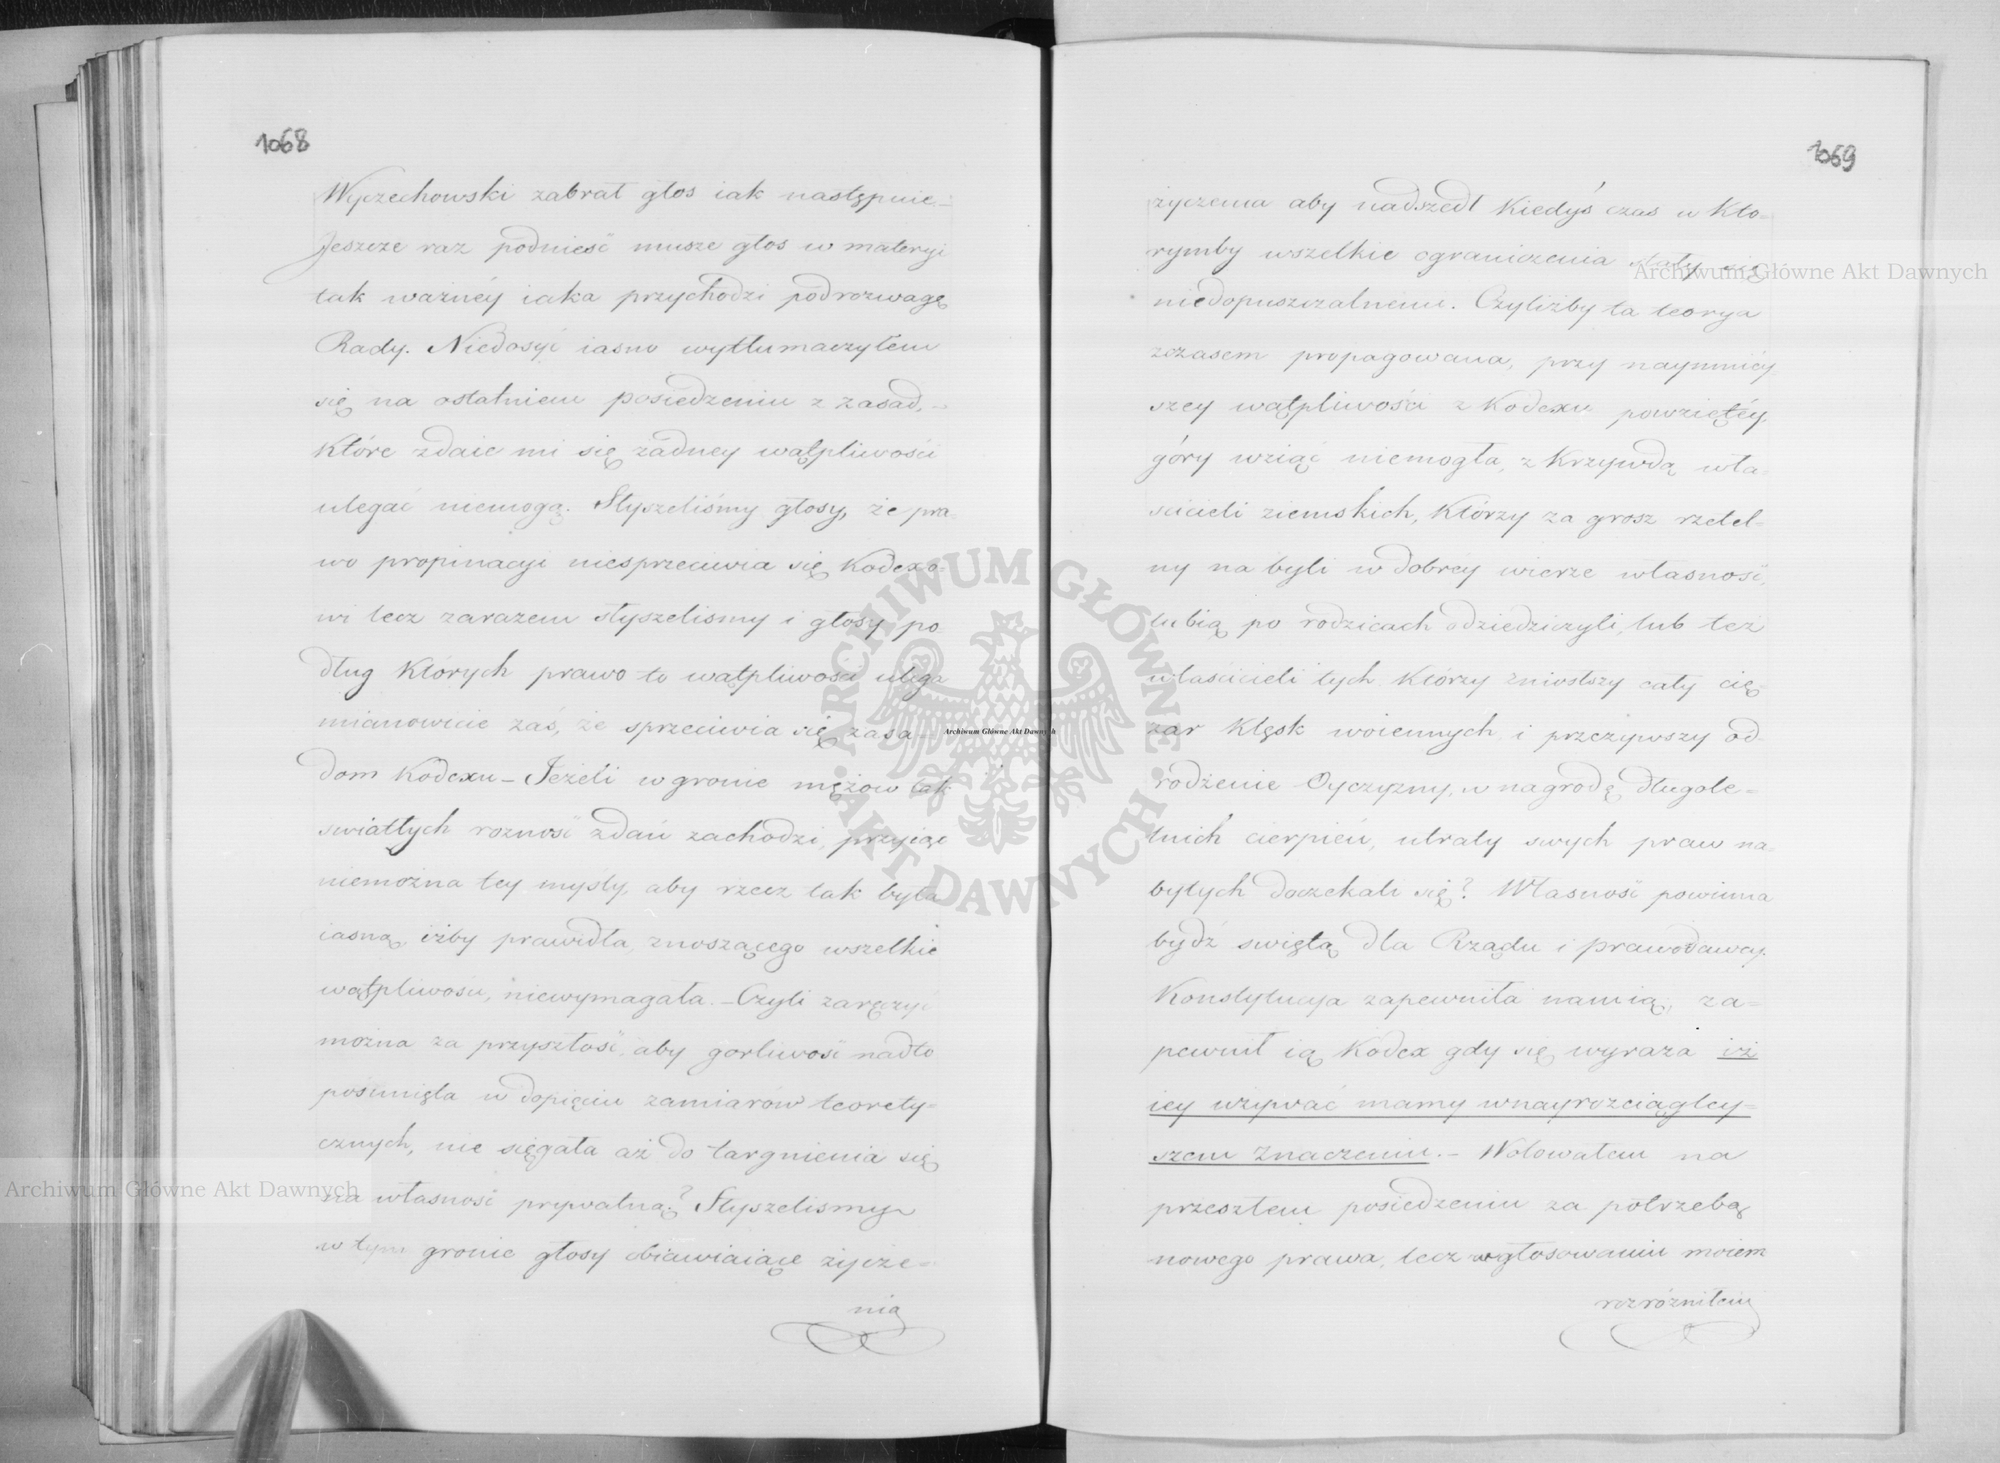 1068
Wyczechowski zabrał głos iak następnie.
Jeszcze raz podnieść musze głos w materyi
tak ważnéy iaka przychodzi podrozwagę
Rady. Niedosyć iasno wytłumaczyłem
się na ostatniem posiedzeniu z zasad,
które zdaie mi się żadney wątpliwości
ulegać niemogą. Słyszeliśmy głosy, że pra-
wo propinacyi niesprzeciwia się Kodexo-
wi lecz zarazem słyszelismy i głosy po
dług których prawo to wątpliwości ulega
mianowicie zaś, że sprzeciwia się zasa-
dom Kodexu – Jeżeli w gronie mężow tak
swiatłych roznosć zdań zachodzi, przyiąć
niemożna tey mysly, aby rzecz tak była
iasną iżby prawidła, znoszącego wszelkie
wątpliwosci, niewymagała. – Czyli zaręczyć
można za przyszłość, aby gorliwość nadto
posunięta w dopięciu zamiarów teorety-
cznych, nie sięgała aż do targnienia się
na własność prywatną? Słyszelismy
w tym gronie głosy obiawiaiące życze-
nia
1069
życzenia aby nadszedł kiedyś czas w któ-
rymby wszelkie ograniczenia stały się
niedopuszczalnemi. Czyliżby ta teorya
zczasem propagowana, przy naymniéy-
szey wątpliwości z Kodexu powziętéy,
góry wziąć niemogła, z krzywdą wła-
ścicieli ziemskich, którzy za grosz rzetel-
ny nabyli w dobréy wierze własność,
lubią po rodzicach odziedziczyli, lub też
właścicieli tych którzy zniosłszy cały cię-
żar klęsk woiennych i przeżywszy od-
rodzenie Oyczyzny, w nagrodę długole-
tnich cierpień, utraty swych praw na-
bytych doczekali się? Własność powinna
bydź swiętą dla Rządu i prawodawcy.
Konstytucya zapewniła nam ią, za-
pewnił ią Kodex gdy się wyraża iż
iey używać mamy wnayrozciągley-
szem znaczeniu. – Wotowałem na
przeszłem posiedzeniu za potrzebą
nowego prawa, lecz w głosowaniu moiem
rozróżniłem
Archiwum Główne Akt Dawnych
Archiwum Główne Akt Dawnych
Archiwum Główne Akt Dawnych
ARCHIWUM GŁÓWNE AKT DAWNYCH